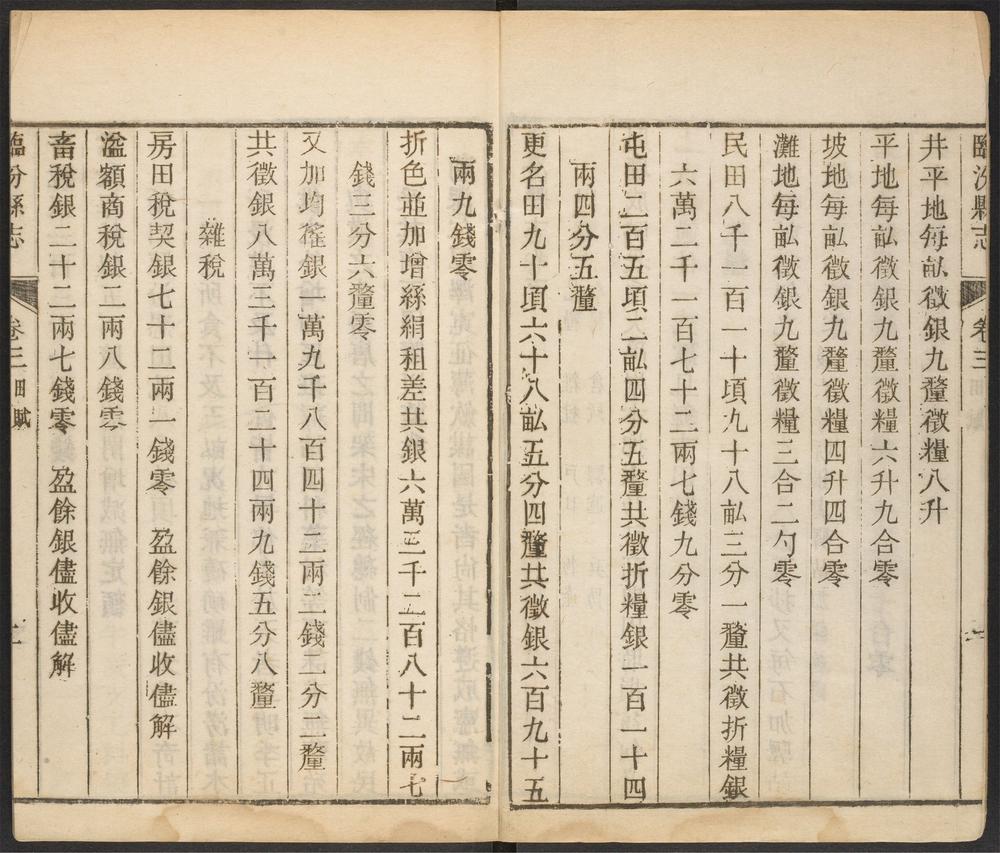 臨汾縣志
卷三 田賦
井平地每畆徵銀九釐徵糧八升
平地每畆徵銀九釐徵糧六升九合零
坡地每畆徵銀九釐徵糧四升四合零
灘地每畆徵銀九釐徵糧三合二勺零
民田八千一百一十頃九十八畆二分一釐共徵折糧銀
六萬二千一百七十二兩七錢九分零
屯田二百五頃二畆四分五釐共徵折糧銀一百一十四
兩四分五釐
更名田九十頃六十八畆五分四釐共徵銀六百九十五
兩九錢零
折色並加增絲絹租差共銀六萬三千二百八十二兩七
錢三分六釐零
又加均徭銀一萬九千八百四十二兩二錢二分二釐
共徵銀八萬三千一百二十四兩九錢五分八釐
雜稅
房田稅契銀七十二兩一錢零 盈餘銀儘收儘解
溢額商稅銀二兩八錢零
畜稅銀二十二兩七錢零 盈餘銀儘收儘解
臨汾縣志
卷三 田賦